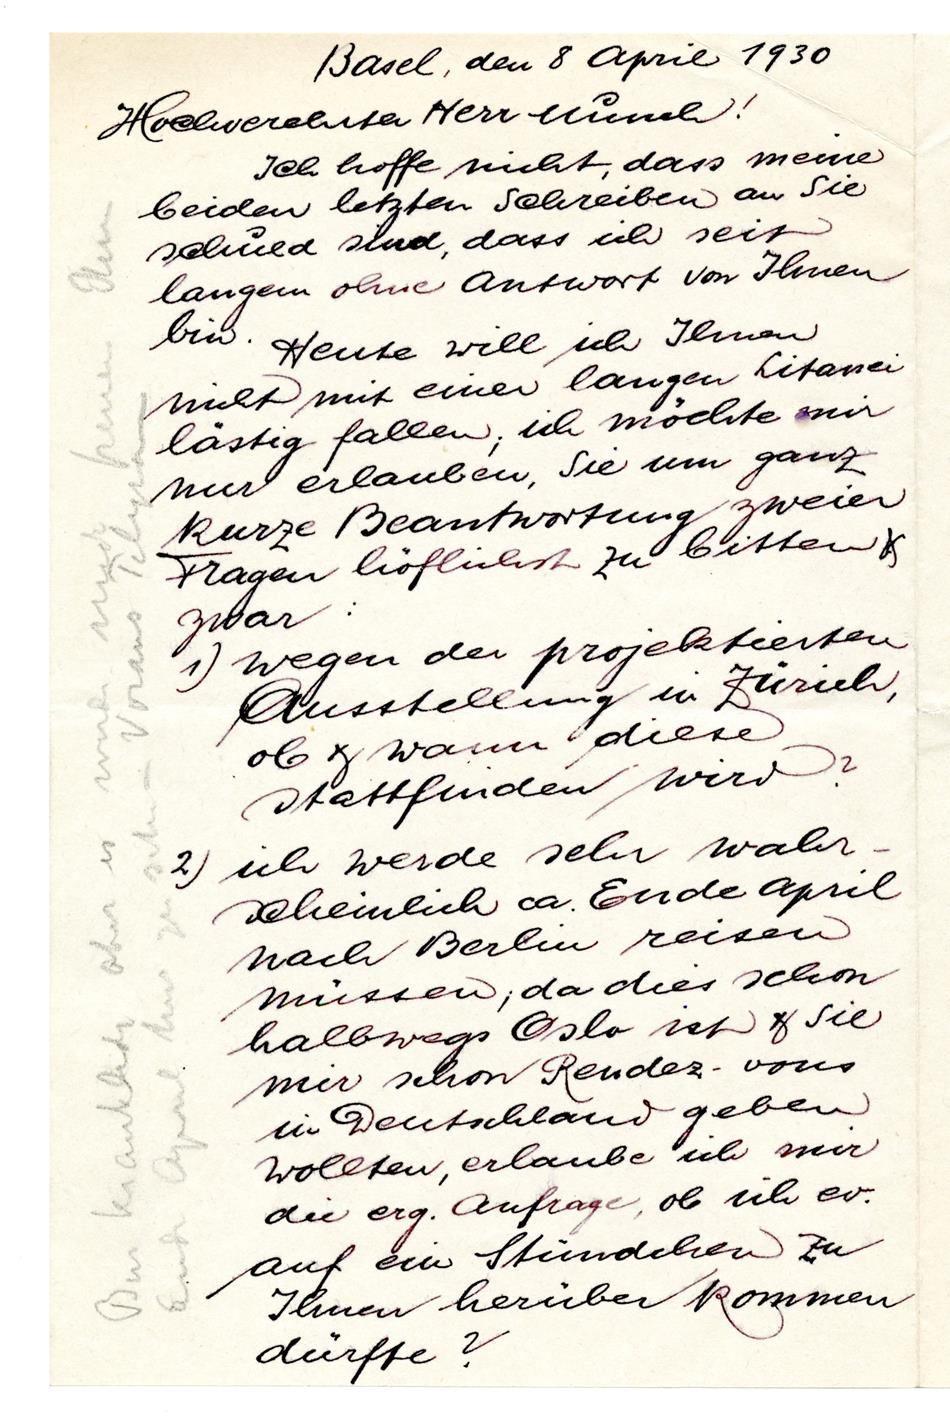 Basel, den 8 April 1930
Hochverehrter Herr Munch!
Ich hoffe nicht, dass meine
beiden letzten Schreiben an Sie
schuld sind, dass ich seit
langem ohne Antwort von Ihnen
bin. Heute will ich Ihnen
nicht mit einer langen Litanei
lästig fallen, ich möchte mir
nur erlauben, Sie um ganz
kurze Beantwortung zweier
Fragen höflichst zu bitten &
zwar:
1) wegen der projektierten
Ausstellung in Zürich,
ob & wann diese
stattfinden wird?
2) ich werde sehr wahr-
scheinlich ca. Ende April
nach Berlin reisen
müssen; da dies schon
halbwegs Oslo ist & Sie
mir schon Rendez-vous
in Deutschland geben
wollten, erlaube ich mir
die erg. Anfrage, ob ich ev.
auf ein Stündchen zu
Ihnen herüber kommen
dürfte?
Bin aber es
Ende April zu sehn – Voraus Telegram